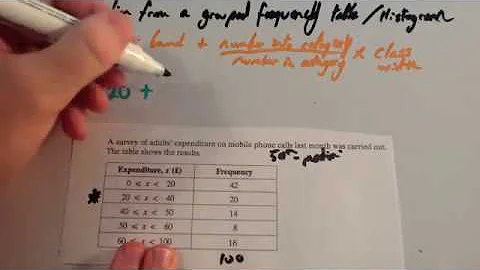 from a grouped frequency table / Histogram
band + number into category / number in category × class width
20 +
A survey of adults' expenditure on mobile phone calls last month was carried out.
The table shows the results.
50th median
Expenditure, x (£) Frequency
0 ⩽ x < 20 42
* 20 ⩽ x < 40 20
40 ⩽ x < 50 14
50 ⩽ x < 60 8
60 ⩽ x < 100 16
100